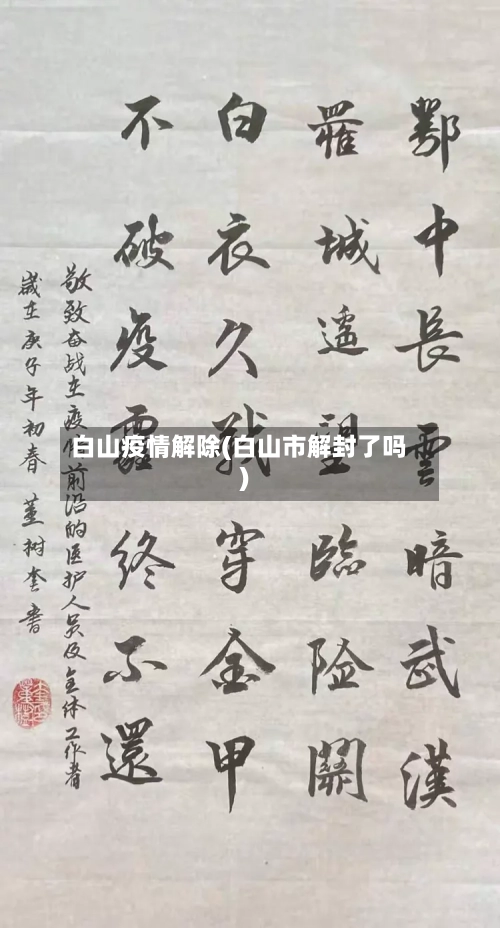 鄂中長雲暗武漢
罹城遥望臨险關
白衣久戰穿金甲
不破疫霾终不還
敬致奋战在疫情前沿的医护人员及全体工作者
歲在庚子年初春 董树奎書
白山疫情解除(白山市解封了吗
)